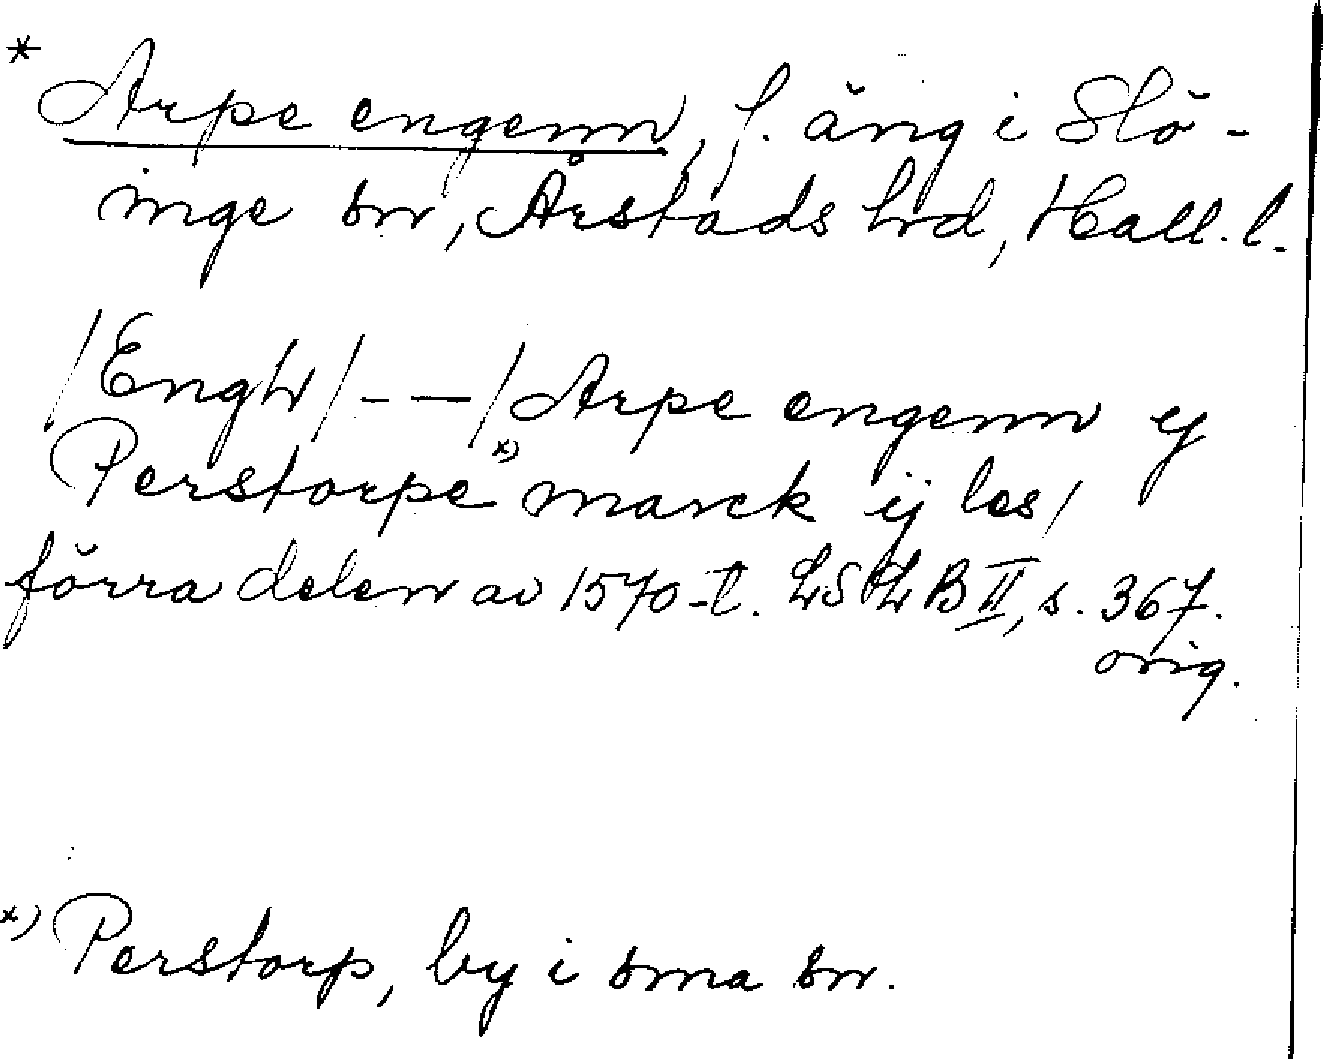 * Arpe engenn, f. äng i Slö-
inge sn, Årstads hd, Hall. l.
/Engh/ - — / Arpe engenn ij
Perstorpe x) marck ij les/
förra delen av 1570-t. LSLB II, s. 367.
orig.
x) Perstorp, by i sma sn.